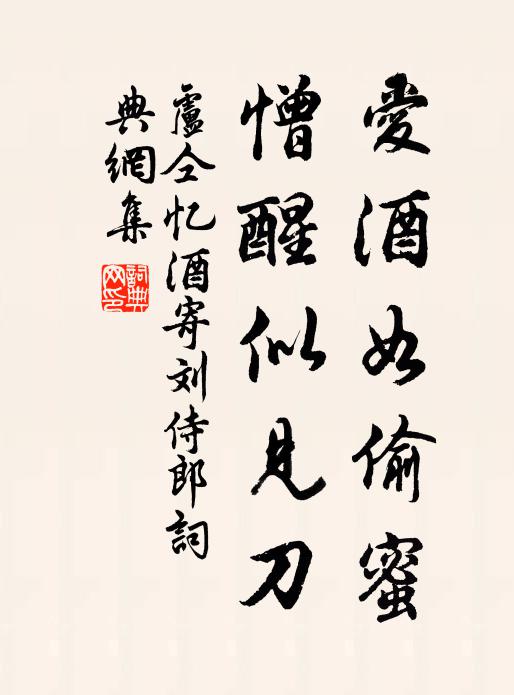 愛酒如偷蜜
憎醒似見刀
盧仝忆酒寄刘侍郎詞
典網集
詞典
网印